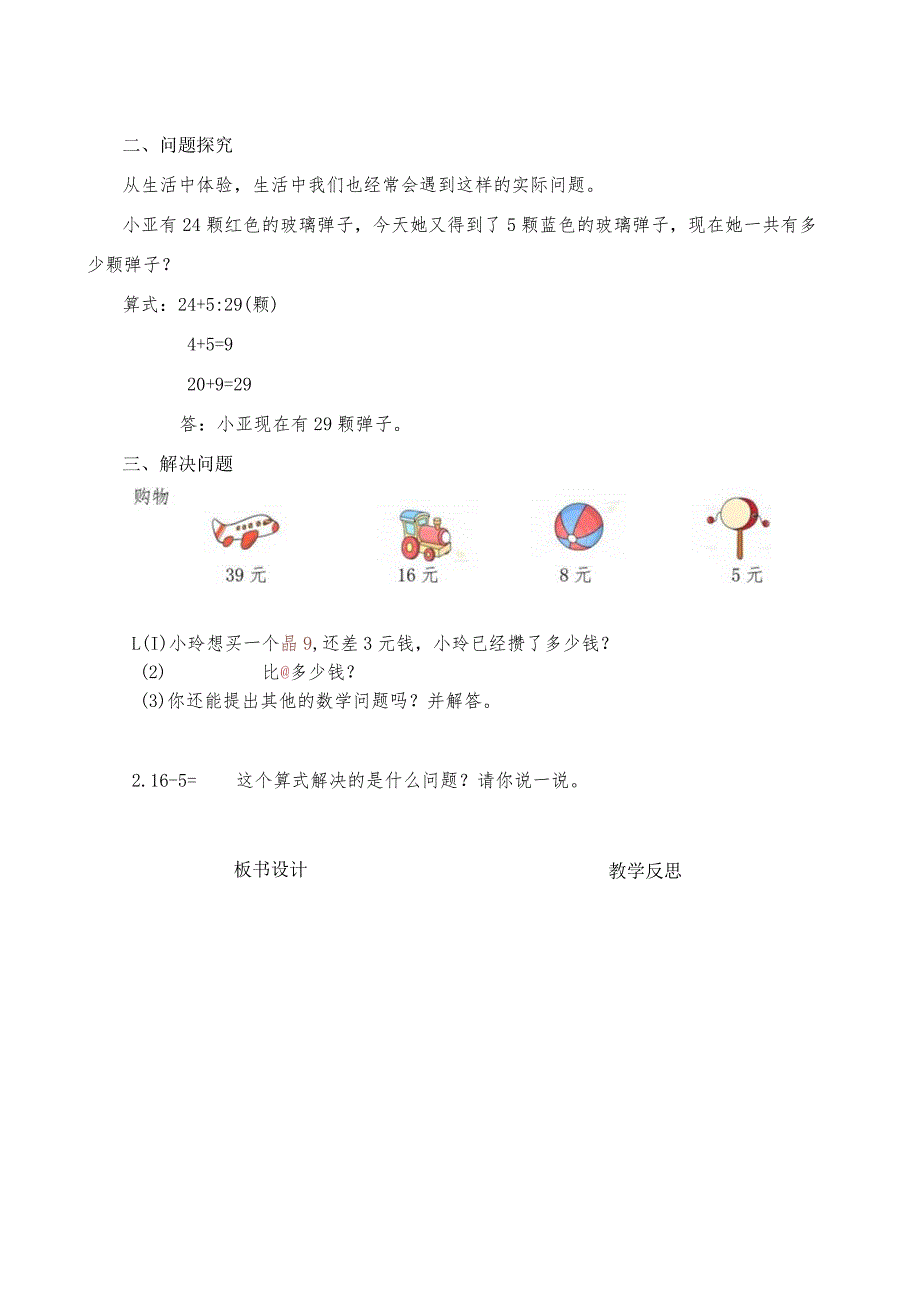 二、问题探究
从生活中体验，生活中我们也经常会遇到这样的实际问题。
小亚有24颗红色的玻璃弹子，今天她又得到了5颗蓝色的玻璃弹子，现在她一共有多
少颗弹子？
算式：24+5:29(颗)
4+5=9
20+9=29
答：小亚现在有29颗弹子。
三、解决问题
购物
39元 16元 8元 5元
L(I)小玲想买一个晶9,还差3元钱，小玲已经攒了多少钱？
(2) 比@多少钱？
(3)你还能提出其他的数学问题吗？并解答。
2.16-5= 这个算式解决的是什么问题？请你说一说。
板书设计 教学反思